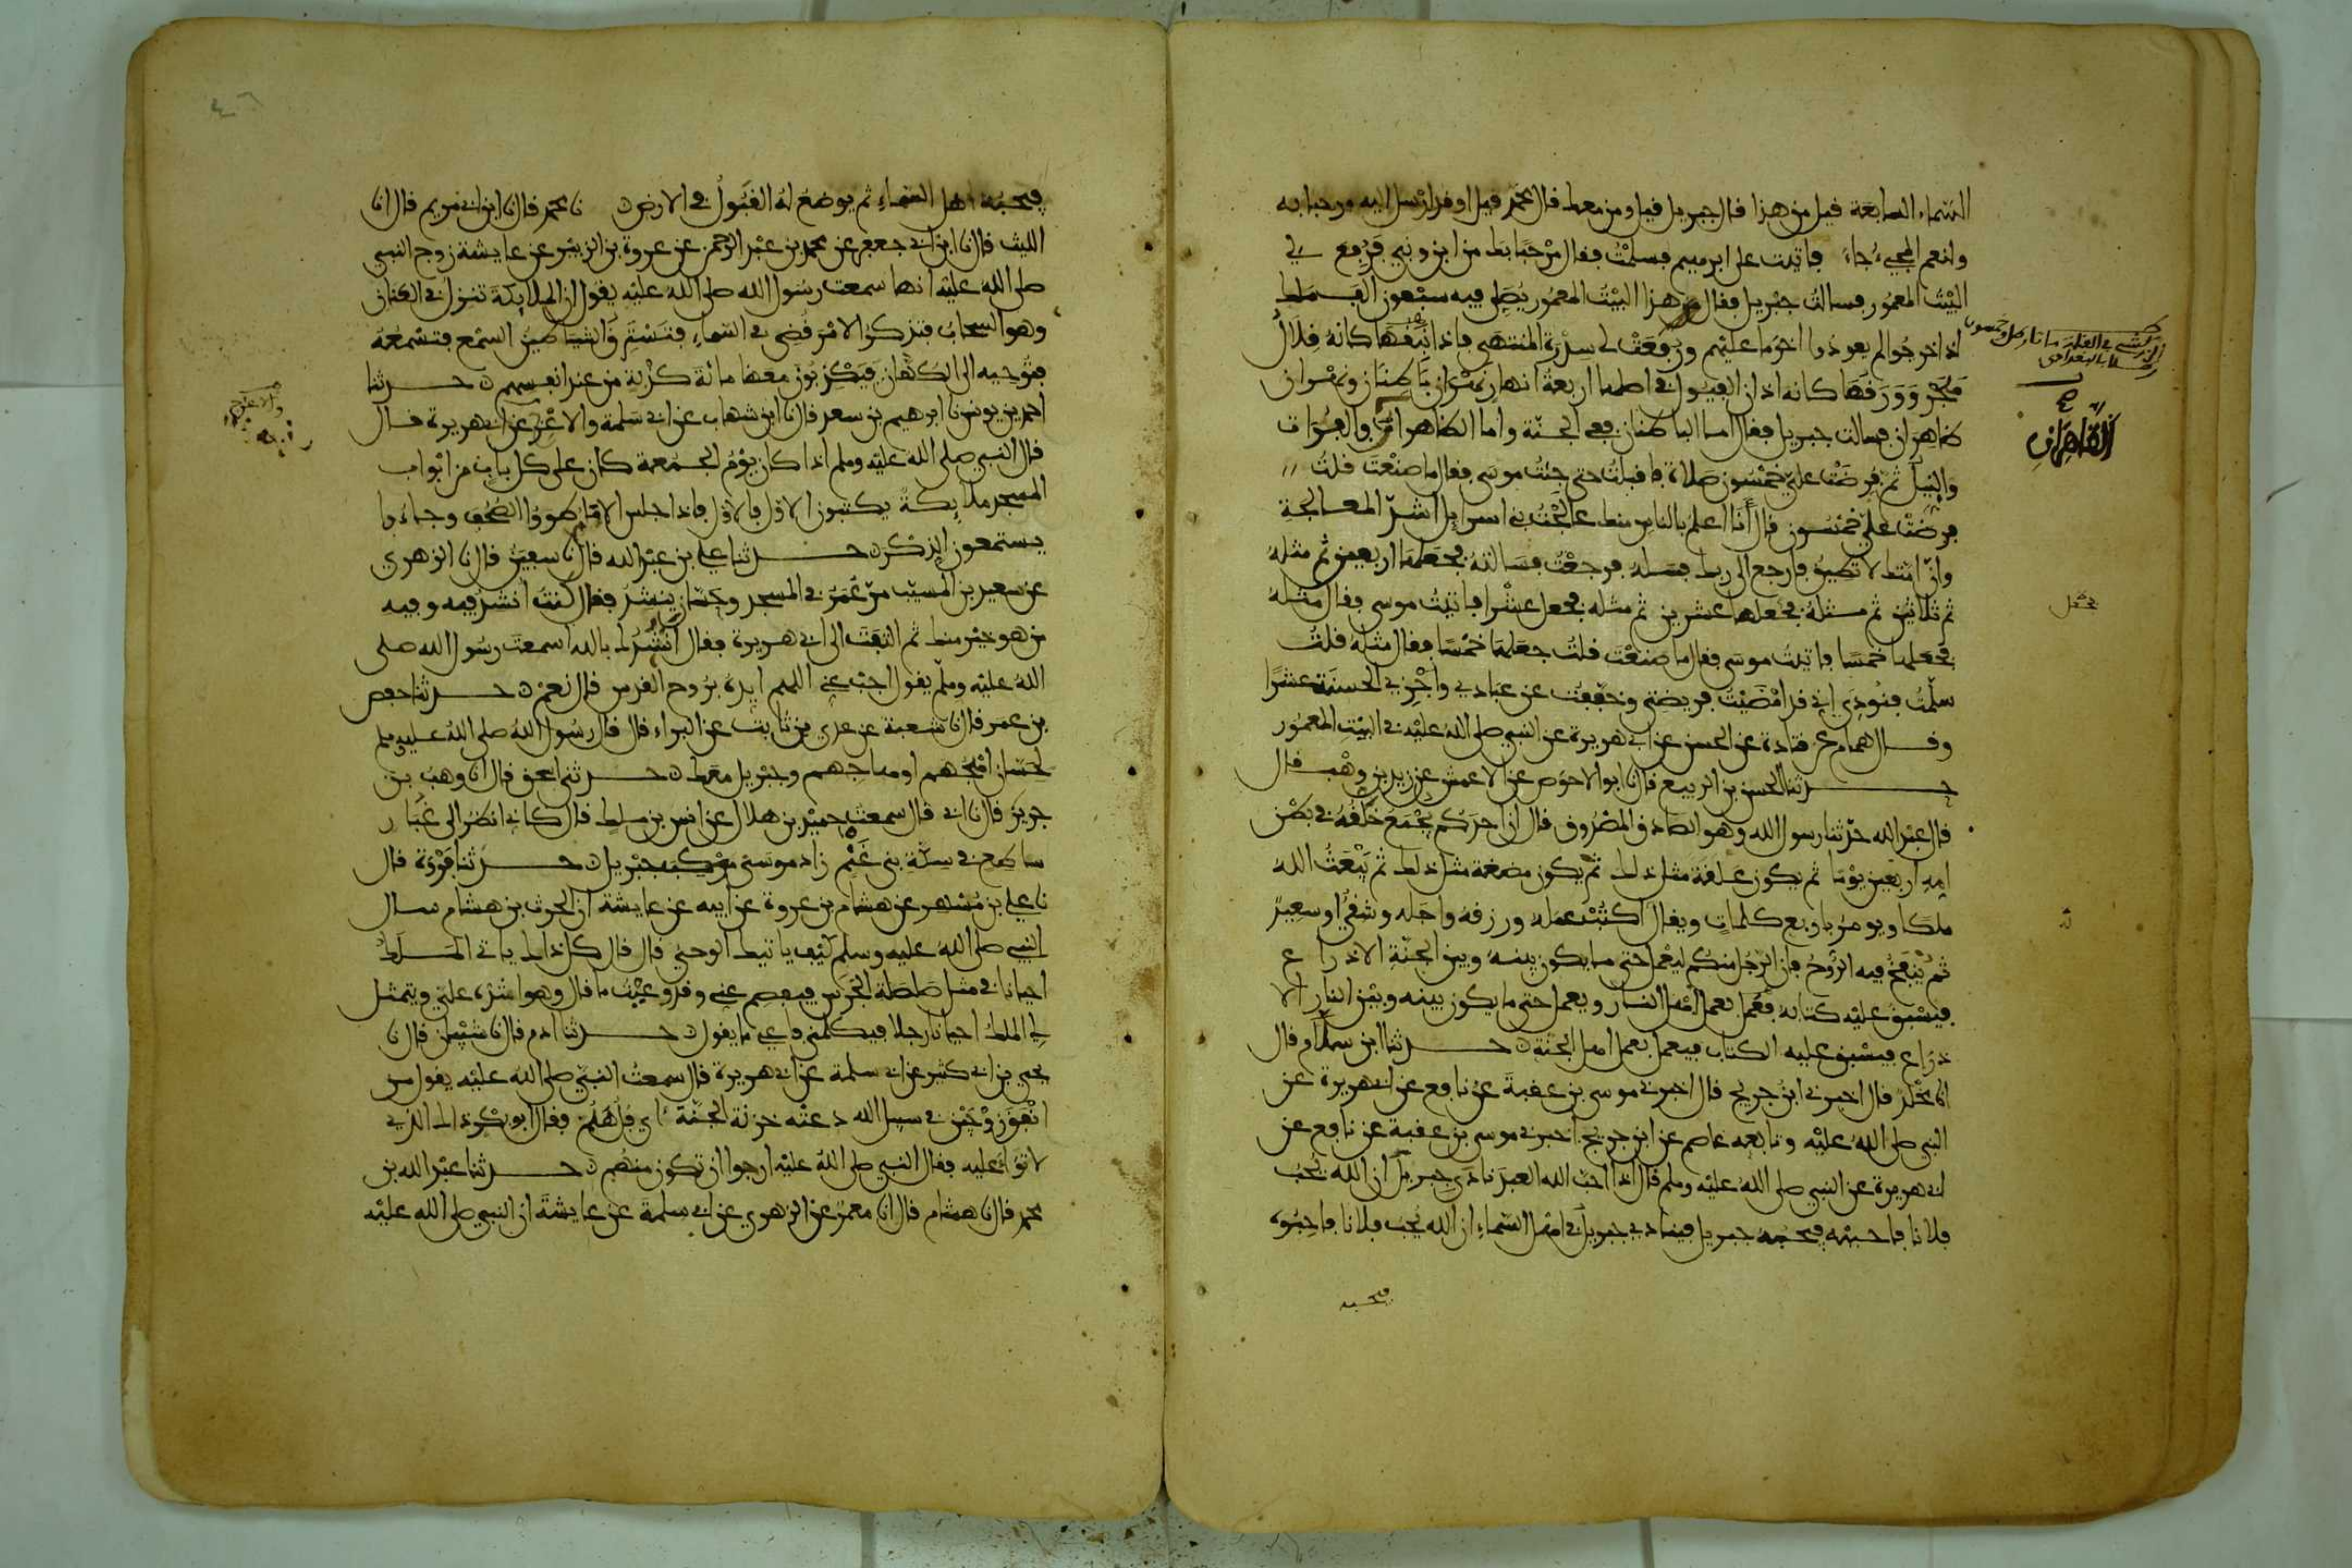 السماء السابعة قيل من هذا قال جبريل قيل ومن معك قال محمد قيل او قد ارسل اليه مرحبا به
ولنعم المجيء جاء فاتيت على ابرهيم فسلمت فقال مرحبا بك من ابن ونبي فرفع لي
البيت المعمور فسالت جبريل فقال هذا البيت المعمور يصلي فيه سبعون الف ملك
اذا خرجوا لم يعودوا اخر ما عليهم ورفعت لي سدرة المنتهى فاذا نبقها كانه قلال
هجر وورقها كانه اذان الفيول في اصلها اربعة انهار نهران باطنان ونهران
ظاهران فسالت جبريل فقال اما الباطنان ففي الجنة واما الظاهران فالفرات
والنيل ثم فرضت علي خمسون صلاة فاقبلت حتى جئت موسى فقال ما صنعت قلت
فرضت علي خمسون قال أنا اعلم بالناس منك عالجت بني اسرايل اشد المعالجة
وان امتك لا تطيق فارجع الى ربك فسله فرجعت فسالته فجعلها اربعين ثم مثله
ثم ثلاثين ثم مثله فجعلها عشرين ثم مثله فجعل عشرا فاتيت موسى فقال مثله
فجعلها خمسا فاتيت موسى فقال ما صنعت قلت جعلها خمسا فقال مثله قلت
سلمت فنودي اني قد امضيت فريضتي وخففت عن عبادي واجزي الحسنة عشرا
وقال همام عن قتادة عن الحسن عن ابي هريرة عن النبي صلى الله عليه في البيت المعمور
حدثنا الحسن بن الربيع قال نا ابو الاحوص عن الاعمش عن زيد بن وهب قال
قال عبد الله حدثنا رسول الله وهو الصادق المصدوق قال ان احدكم يجمع خلقه في بطن
امه اربعين يوما ثم يكون علقة مثل ذلك ثم يكون مضغة مثل ذلك ثم يبعث الله
ملكا ويومر باربع كلمات ويقال اكتب عمله ورزقه واجله وشقي او سعيد
ثم ينفخ فيه الروح فان الرجل منكم ليعمل حتى ما يكون بينه وبين الجنة الا ذراع
فيسبق عليه كتابه فيعمل بعمل اهل النار ويعمل حتى ما يكون بينه وبين النار الا
ذراع فيسبق عليه الكتاب فيعمل بعمل اهل الجنة حدثنا ابن سلام قال
انا مخلد قال اخبرني ابن جريج قال اخبرني موسى بن عقبة عن نافع عن ابي هريرة عن
النبي صلى الله عليه وتابعه عاصم عن ابن جريج اخبرني موسى بن عقبة عن نافع عن
ابي هريرة عن النبي صلى الله عليه وسلم قال اذا احب الله العبد نادى جبريل ان الله يحب
فلانا فاحببه فيحبه جبريل فينادي جبريل في اهل السماء ان الله يحب فلانا فاحبوه
فيحبه
الظاهران
فجعل
فيحبه اهل السماء ثم يوضع له القبول في الارض نا محمد قال نا ابن ابي مريم قال انا
الليث قال نا ابن ابي جعفر عن محمد بن عبد الرحمن عن عروة بن الزبير عن عايشة زوج النبي
صلى الله عليه انها سمعت رسول الله صلى الله عليه يقول ان الملايكة تنزل في العنان
وهو السحاب فتذكر الامر قضي في السماء فتسترق الشياطين السمع فتسمعه
فتوحيه الى الكهان فيكذبون معها مائة كذبة من عند انفسهم حدثنا
احمد بن يونس نا ابرهيم بن سعد قال نا ابن شهاب عن ابي سلمة والاغر عن ابي هريرة قال
قال النبي صلى الله عليه وسلم اذا كان يوم الجمعة كان على كل باب من ابواب
المسجد ملايكة يكتبون الاول فالاول فاذا جلس الامام طووا الصحف وجاءوا
يستمعون الذكر حدثنا علي بن عبد الله قال نا سفين قال نا الزهري
عن سعيد بن المسيب مر عمر في المسجد وحسان ينشد فقال كنت انشد فيه وفيه
من هو خير منك ثم التفت الى ابي هريرة فقال انشدك بالله اسمعت رسول الله صلى
الله عليه وسلم يقول اجب عني اللهم ايده بروح القدس قال نعم حدثنا حفص
بن عمر قال نا شعبة عن عدي بن ثابت عن البراء قال قال رسول الله صلى الله عليه وسلم
لحسان اهجهم او هاجهم وجبريل معك حدثنا اسحق قال انا وهب بن
جرير قال نا ابي قال سمعت حميد بن هلال عن انس بن ملك قال كاني انظر الى غبار
ساطع في سكة بني غنم زاد موسى موكب جبريل حدثنا فروة قال
نا علي بن مسهر عن هشام بن عروة عن ابيه عن عايشة ان الحرث بن هشام سال
النبي صلى الله عليه وسلم كيف ياتيك الوحي قال كل ذاك ياتي الملك
احيانا في مثل صلصلة الجرس فيفصم عني وقد وعيت ما قال وهو اشده علي ويتمثل
لي الملك احيانا رجلا فيكلمني فاعي ما يقول حدثنا ادم قال نا شيبن قال نا
يحيى بن ابي كثير عن ابي سلمة عن ابي هريرة قال سمعت النبي صلى الله عليه يقول من
انفق زوجين في سبيل الله دعته خزنة الجنة اي فل هلم فقال ابو بكر ذاك الذي
لا توى عليه فقال النبي صلى الله عليه ارجوا ان تكون منهم حدثنا عبد الله بن
محمد قال نا هشام قال انا معمر عن الزهري عن ابي سلمة عن عايشة ان النبي صلى الله عليه